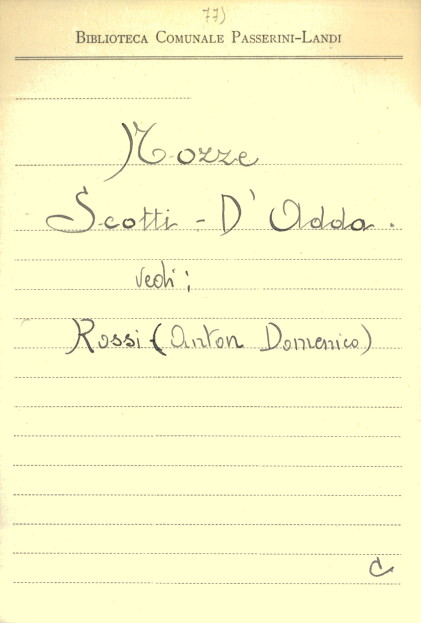 77)
BIBLIOTECA COMUNALE PASSERINI-LANDI
Nozze
Scotti - D'Adda.
vedi:
Rossi (Anton Domenico)
C